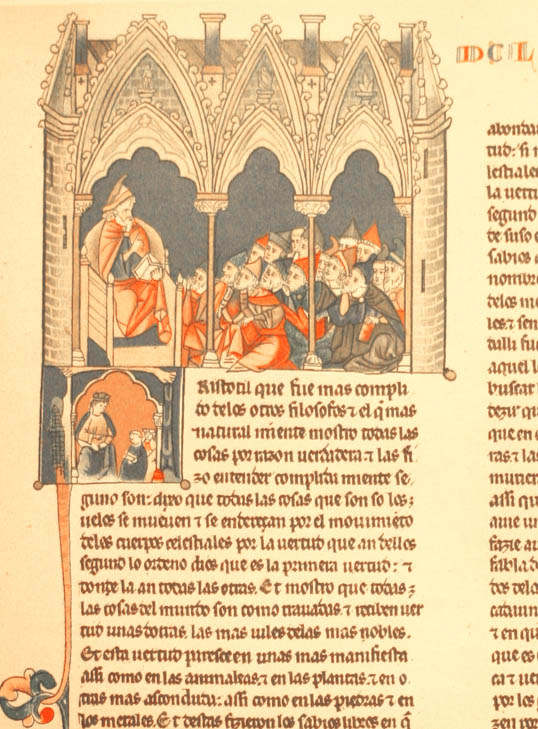 DCL
Ristotil que fue mas compli
do delos otros filosofos ⁊ el q̃ mas
natural miente mostro todas las
cosas por razon uerdadera ⁊ las fi
zo entender complida miente se
gund son: dixo que todas las cosas que son so los
cielos se mueuen ⁊ se endereçan por el mouimiẽto
delos cuerpos celestiales por la uertud que an dellos
segund lo ordeno dios que es la primera uertud: ⁊
donde la an todas las otras. Et mostro que todas
las cosas del mundo son como trauadas ⁊ reciben uer
tud unas dotras. las mas uiles delas mas nobles.
Et esta uertud paresce en unas mas manifiesta
assi como en las animalias ⁊ en las plantas: ⁊ en o
tras mas asconduda: assi como en las piedras ⁊ en
los metales. Et destas fizieron los sabios libros en q̃
abonda
tud: si
lestiales
la uertu
segund
de suso
sabios
nombre
delos
les ⁊ sen
dalli fue
aquel
buscar
dezir qu
que en
ras ⁊ las
assi qu
fazie
fabla
dos delos
cadaun
⁊ en qu
que es
ca ⁊
por los
zen por